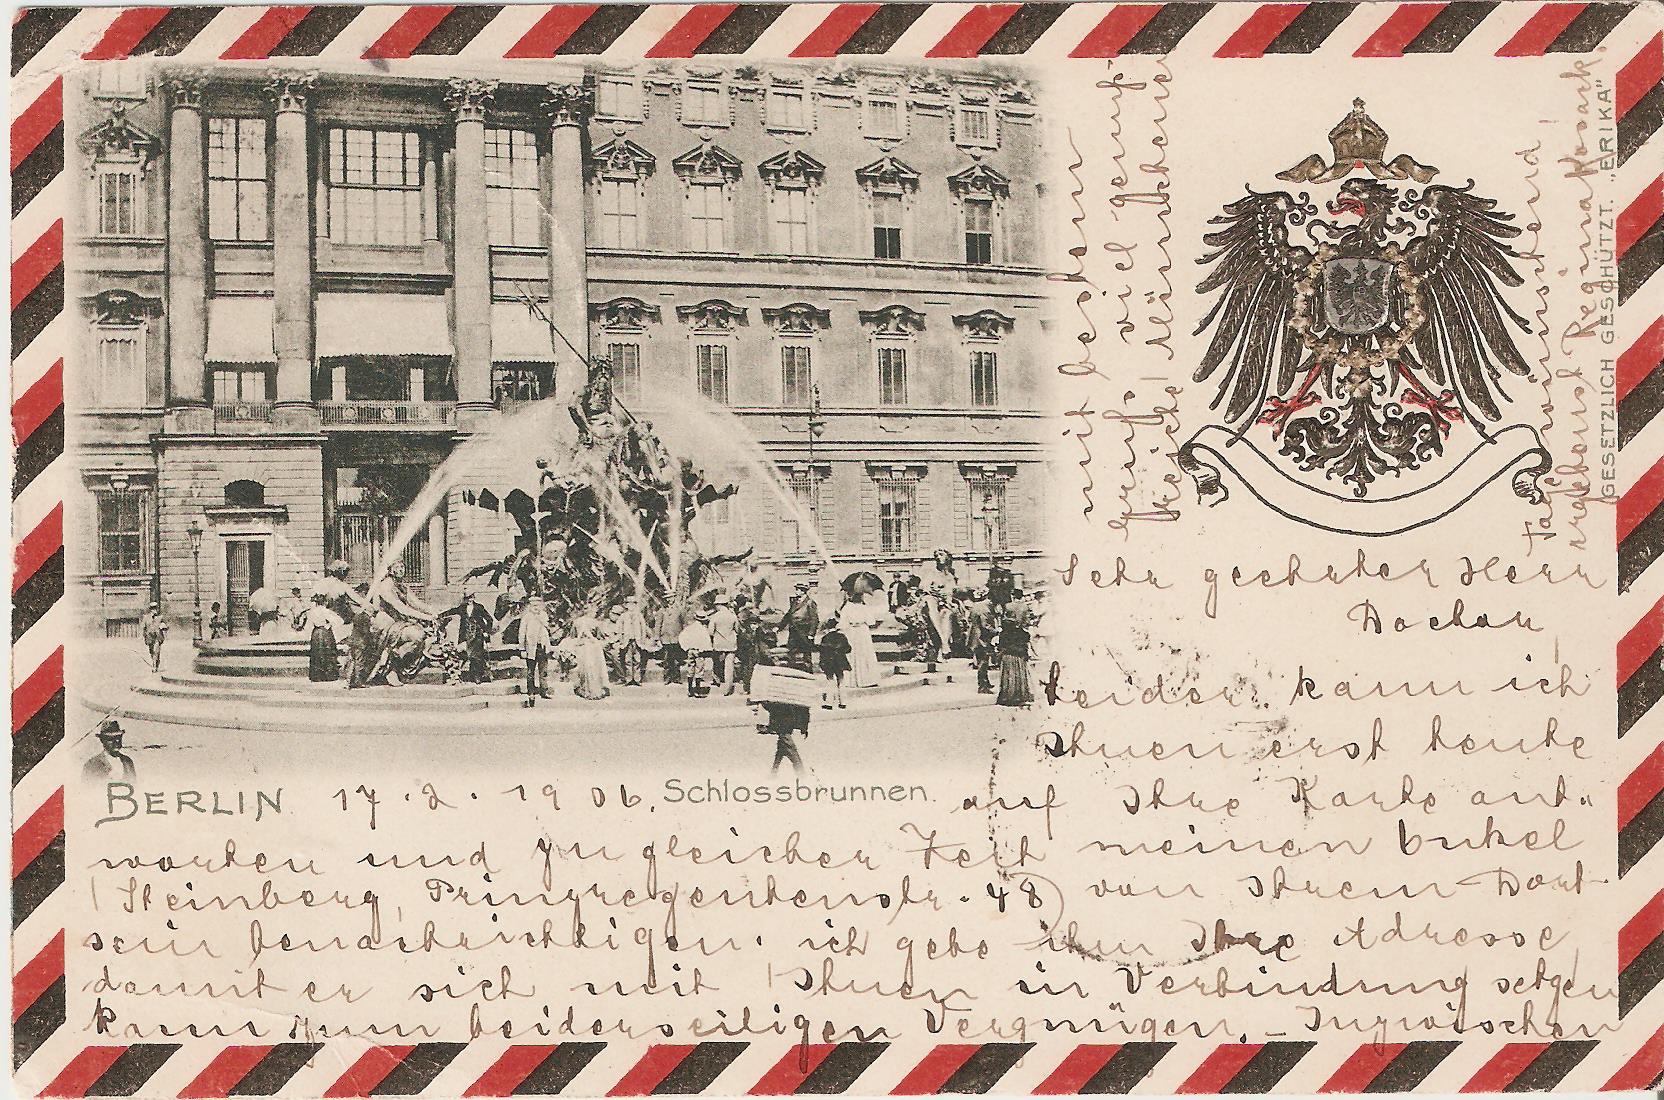 BERLIN 17.2.1906. Schlossbrunnen.
GESETZLICH GESCHÜTZT. "ERIKA"
Sehr geehrter Herr
Dochow,
leider kann ich
Ihnen erst heute
auf Ihre Karte ant-
worten und zu gleicher Zeit meinen Onkel
(Steinberg, Prinzregentenstr. 48) von Ihrem Dort-
sein benachrichtigen. ich gebe ihm Ihre Adresse,
damit er sich mit Ihnen in Verbindung setzen
kann zum beiderseiligen Vergnügen. – Inzwischen
mit bestem
Gruß, viel genuß-
reiche Münchener
Tage wünschend,
Regina